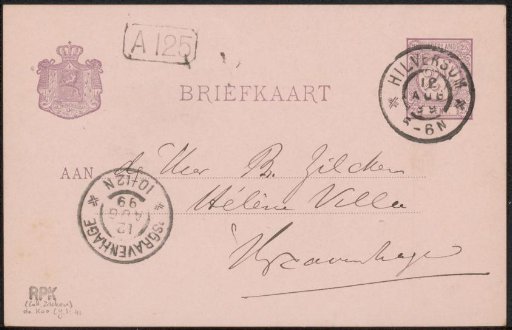 A 125
HILVERSUM
12
AUG
99
5-6N
BRIEFKAART
AAN de Heer B. Zilcken
Hélène Villa
'sGravenhage
'SGRAVENHAGE
12
AUG
99
10-12N
RPK